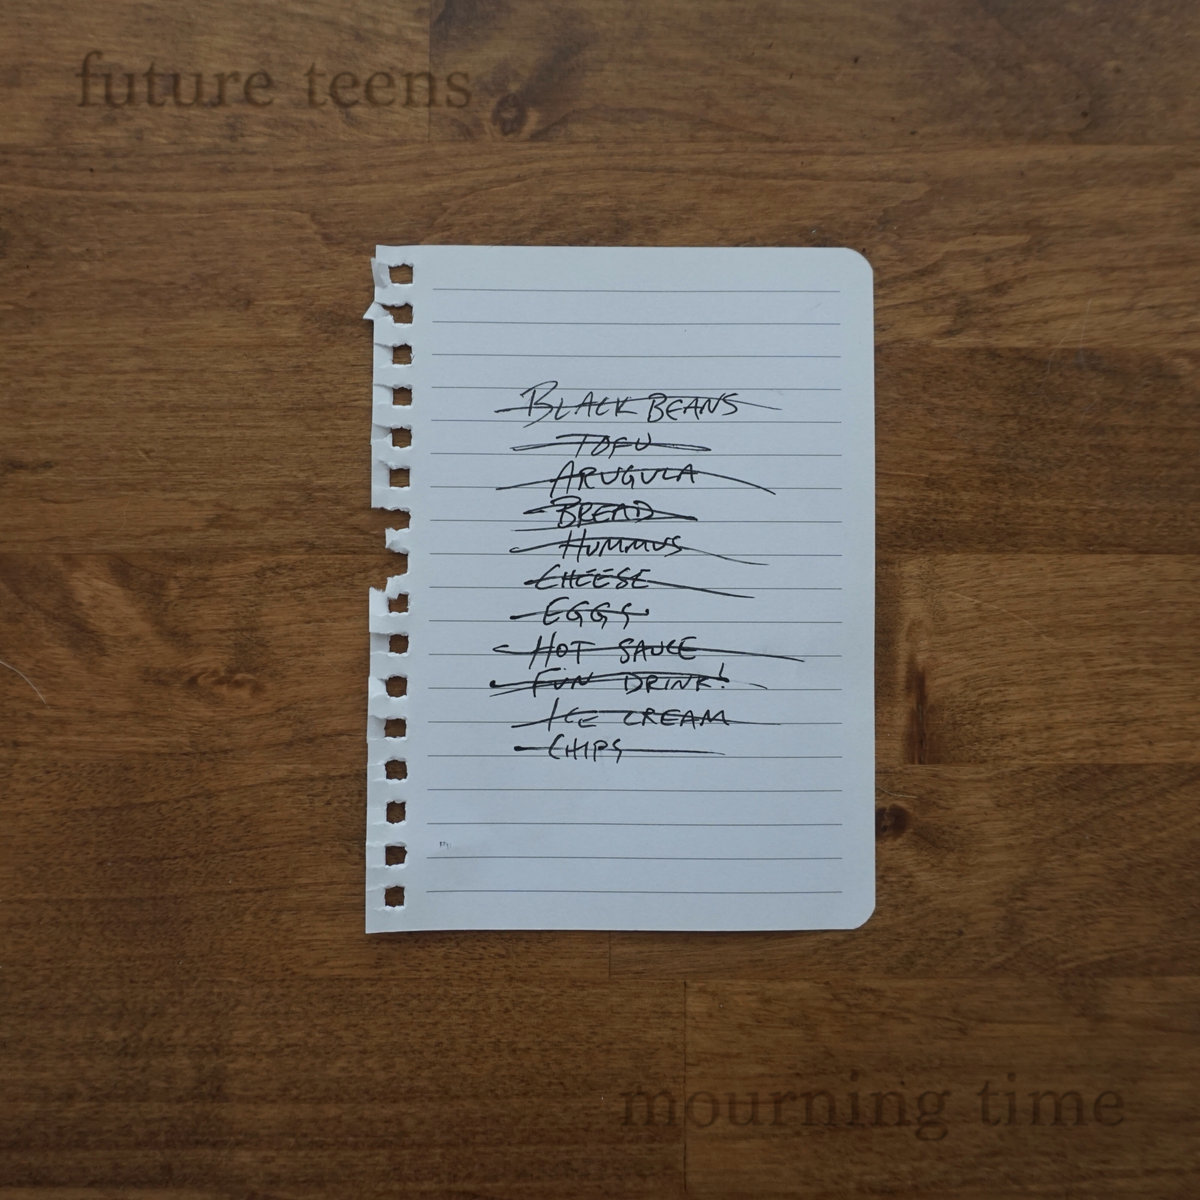 future teens
BLACK BEANS
TOFU
ARUGULA
BREAD
HUMMUS
CHEESE
EGGS
HOT SAUCE
FUN DRINK!
ICE CREAM
CHIPS
mourning time